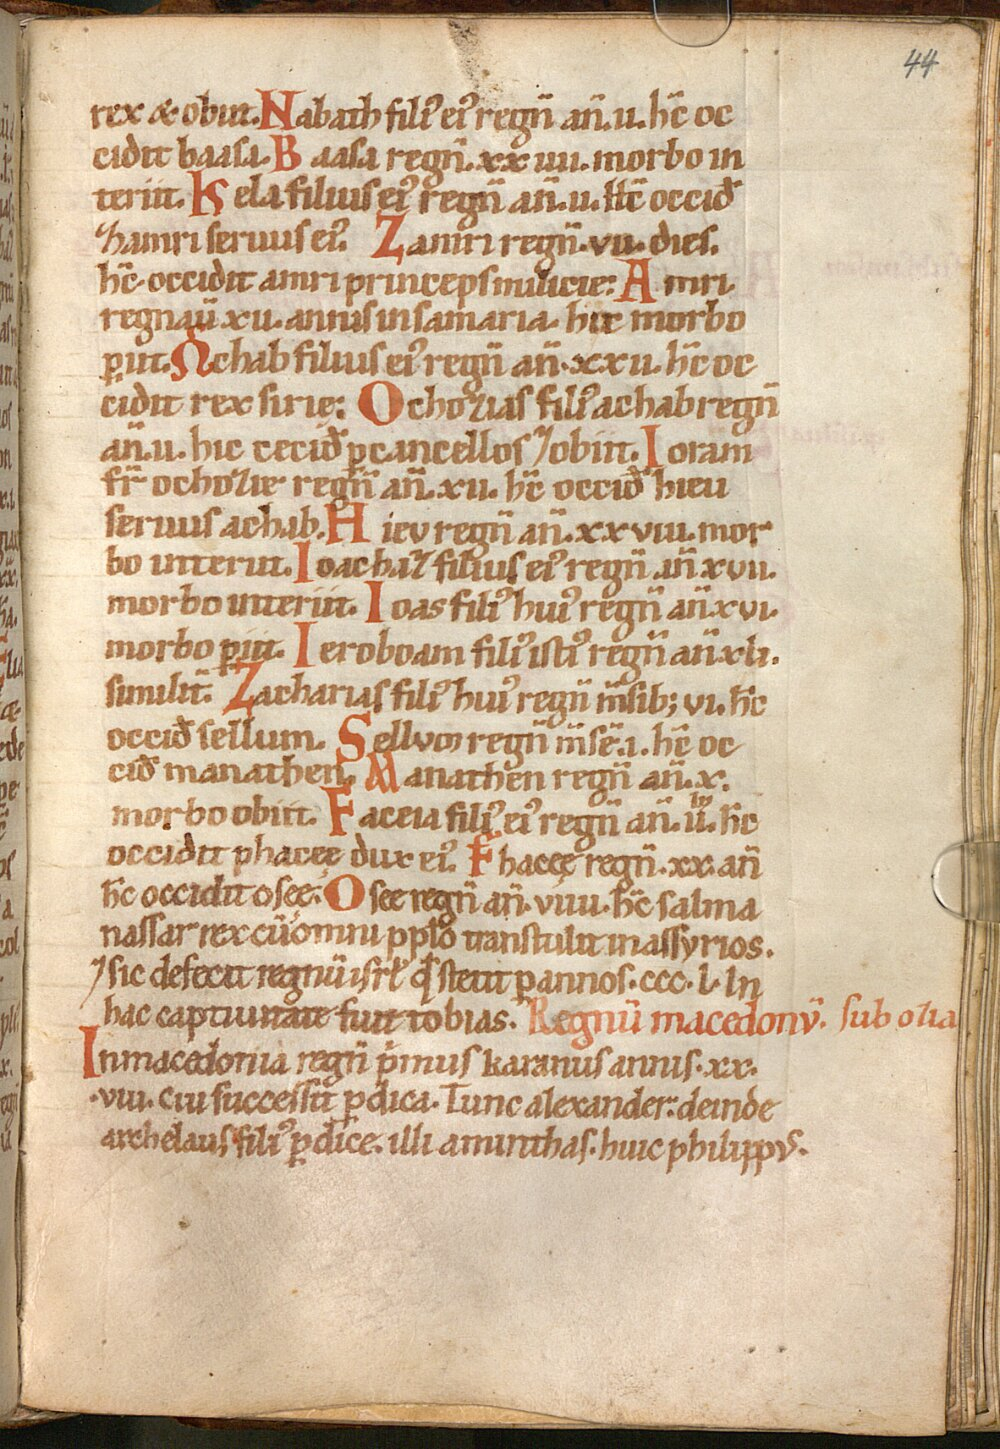 44
rex & obiit. Nabath fili᷒ ei᷒ regn̄ an̄. u. hc̄ oc
cidit baasa. Baasa regn̄. xx iiii. morbo in
teriit. Kela filius ei᷒ regn̄ an̄. u. hc̄ occiđ
hamri seruus ei᷒. Zamri regn̄. vii. dies.
hc̄ occidit amri princeps milicie: Amri
regnau̅ xii. annis in samaria. hic morbo
ꝑiit. Achab filius ei᷒ regn̄ an̄. xxii. hc̄ oc
cidit rex sirię: Ochozias fili᷒ achab regn̄
an̄. ii. hic ceciđ ꝑ cancellos ⁊ obiit. Ioram
fr̄ ochozie regn̄ an̄. xii. hc̄ occiđ hieu
seruus achab. Hieu regn̄ an̄. xx viii. mor
bo interiit. Ioachaz filius ei᷒ regn̄ an̄ xvii.
morbo interiit. Ioas fili᷒ hui᷒ regn̄ an̄ xvi.
morbo ꝑiit. Ieroboam fili᷒ isti᷒ regn̄ an̄ xli.
similit̄. Zacharias fili᷒ hui᷒ regn̄ m̄sib; vi. hc̄
occiđ sellum. Sellum regn̄ m̄sē. i. hc̄ oc
ciđ manathen. Manathen regn̄ an̄. x.
morbo obiit. Faceia fili᷒ ei᷒ regn̄ an̄. ii. hc̄
occidit phaceę dux ei᷒. Phaceę regn̄. xx. an̄
hc̄ occidit oseę: Osee regn̄ an̄. viiii. hc̄ salma
nassar rex cū omni pplo transtulit in assyrios.
⁊ sic defecit regnū isrł qđ stetit ꝑ annos. ccc. l. In
hac captiuitate fuit tobias. Regnū macedonv̄. sub ozia
In macedonia regn̄ pͥmus karanus annis. xx.
.viii. Cui successit ꝑdica. Tunc alexander: deinde
archelaus fili᷒ ꝑdice. illi aminthas. huic philippvs.